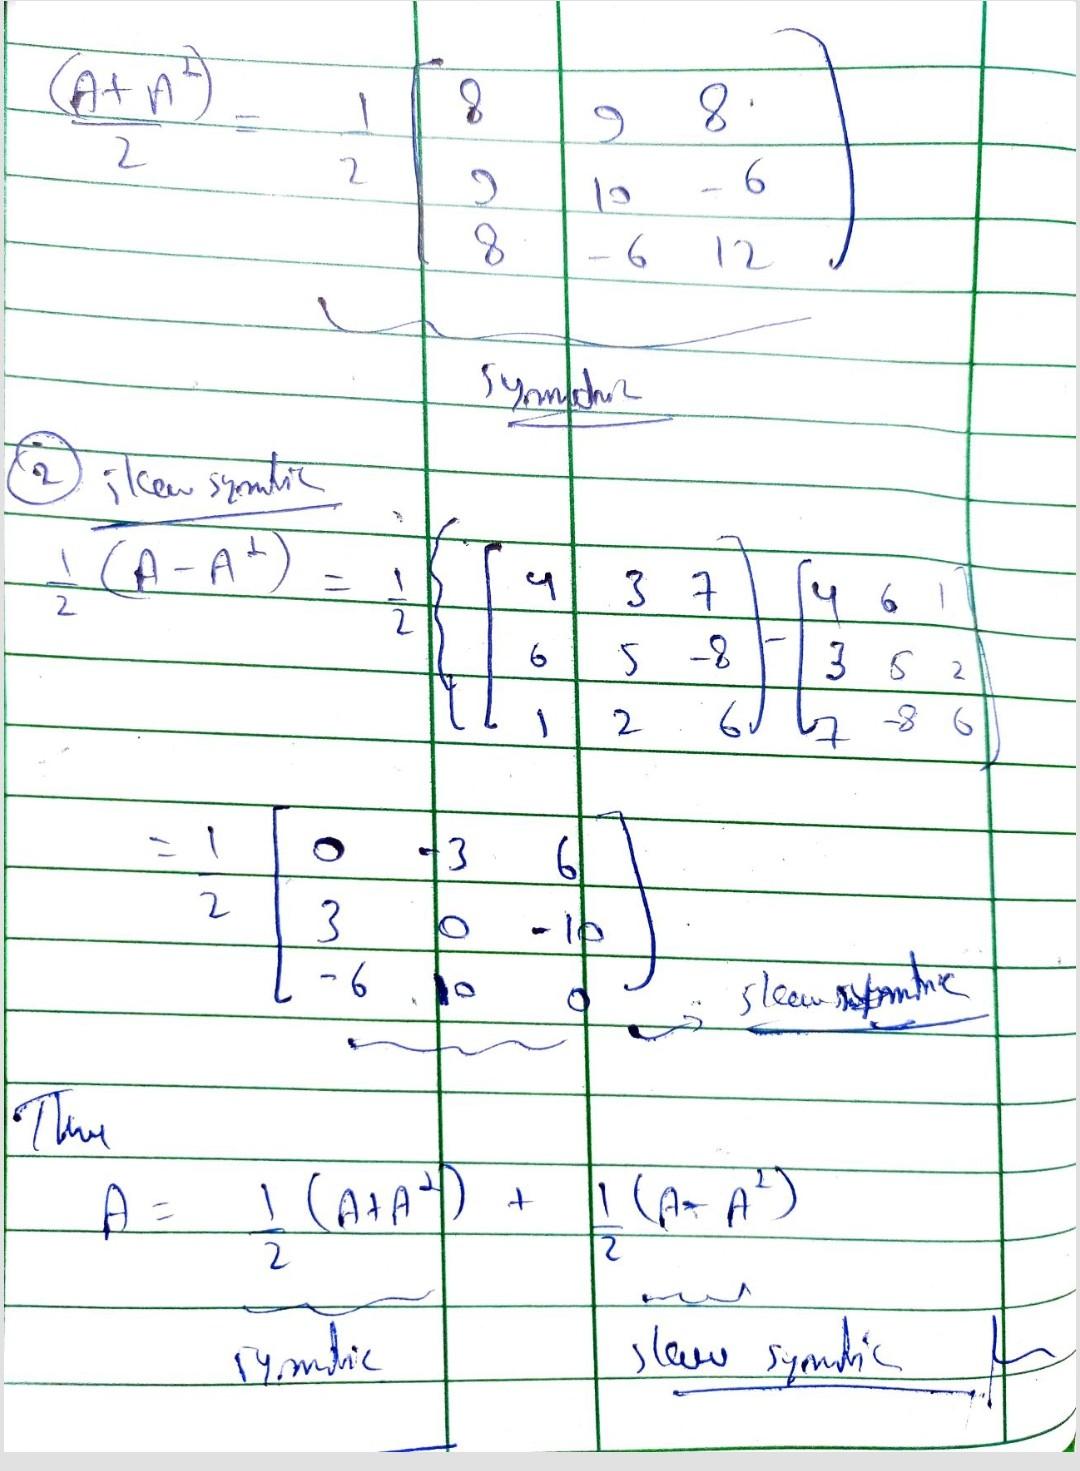 (A + A^t)/2 = 1/2 [ 8 9 8
9 10 -6
8 -6 12 ]
symmetric
(2) skew symmetric
1/2 (A - A^t) = 1/2 { [ 4 3 7 ] - [ 4 6 1 ]
6 5 -8 3 5 2
1 2 6 7 -8 6
= 1/2 [ 0 -3 6
3 0 -10
-6 10 0 ] → skew symmetric
A = 1/2 (A + A^t) + 1/2 (A - A^t)
symmetric skew symmetric